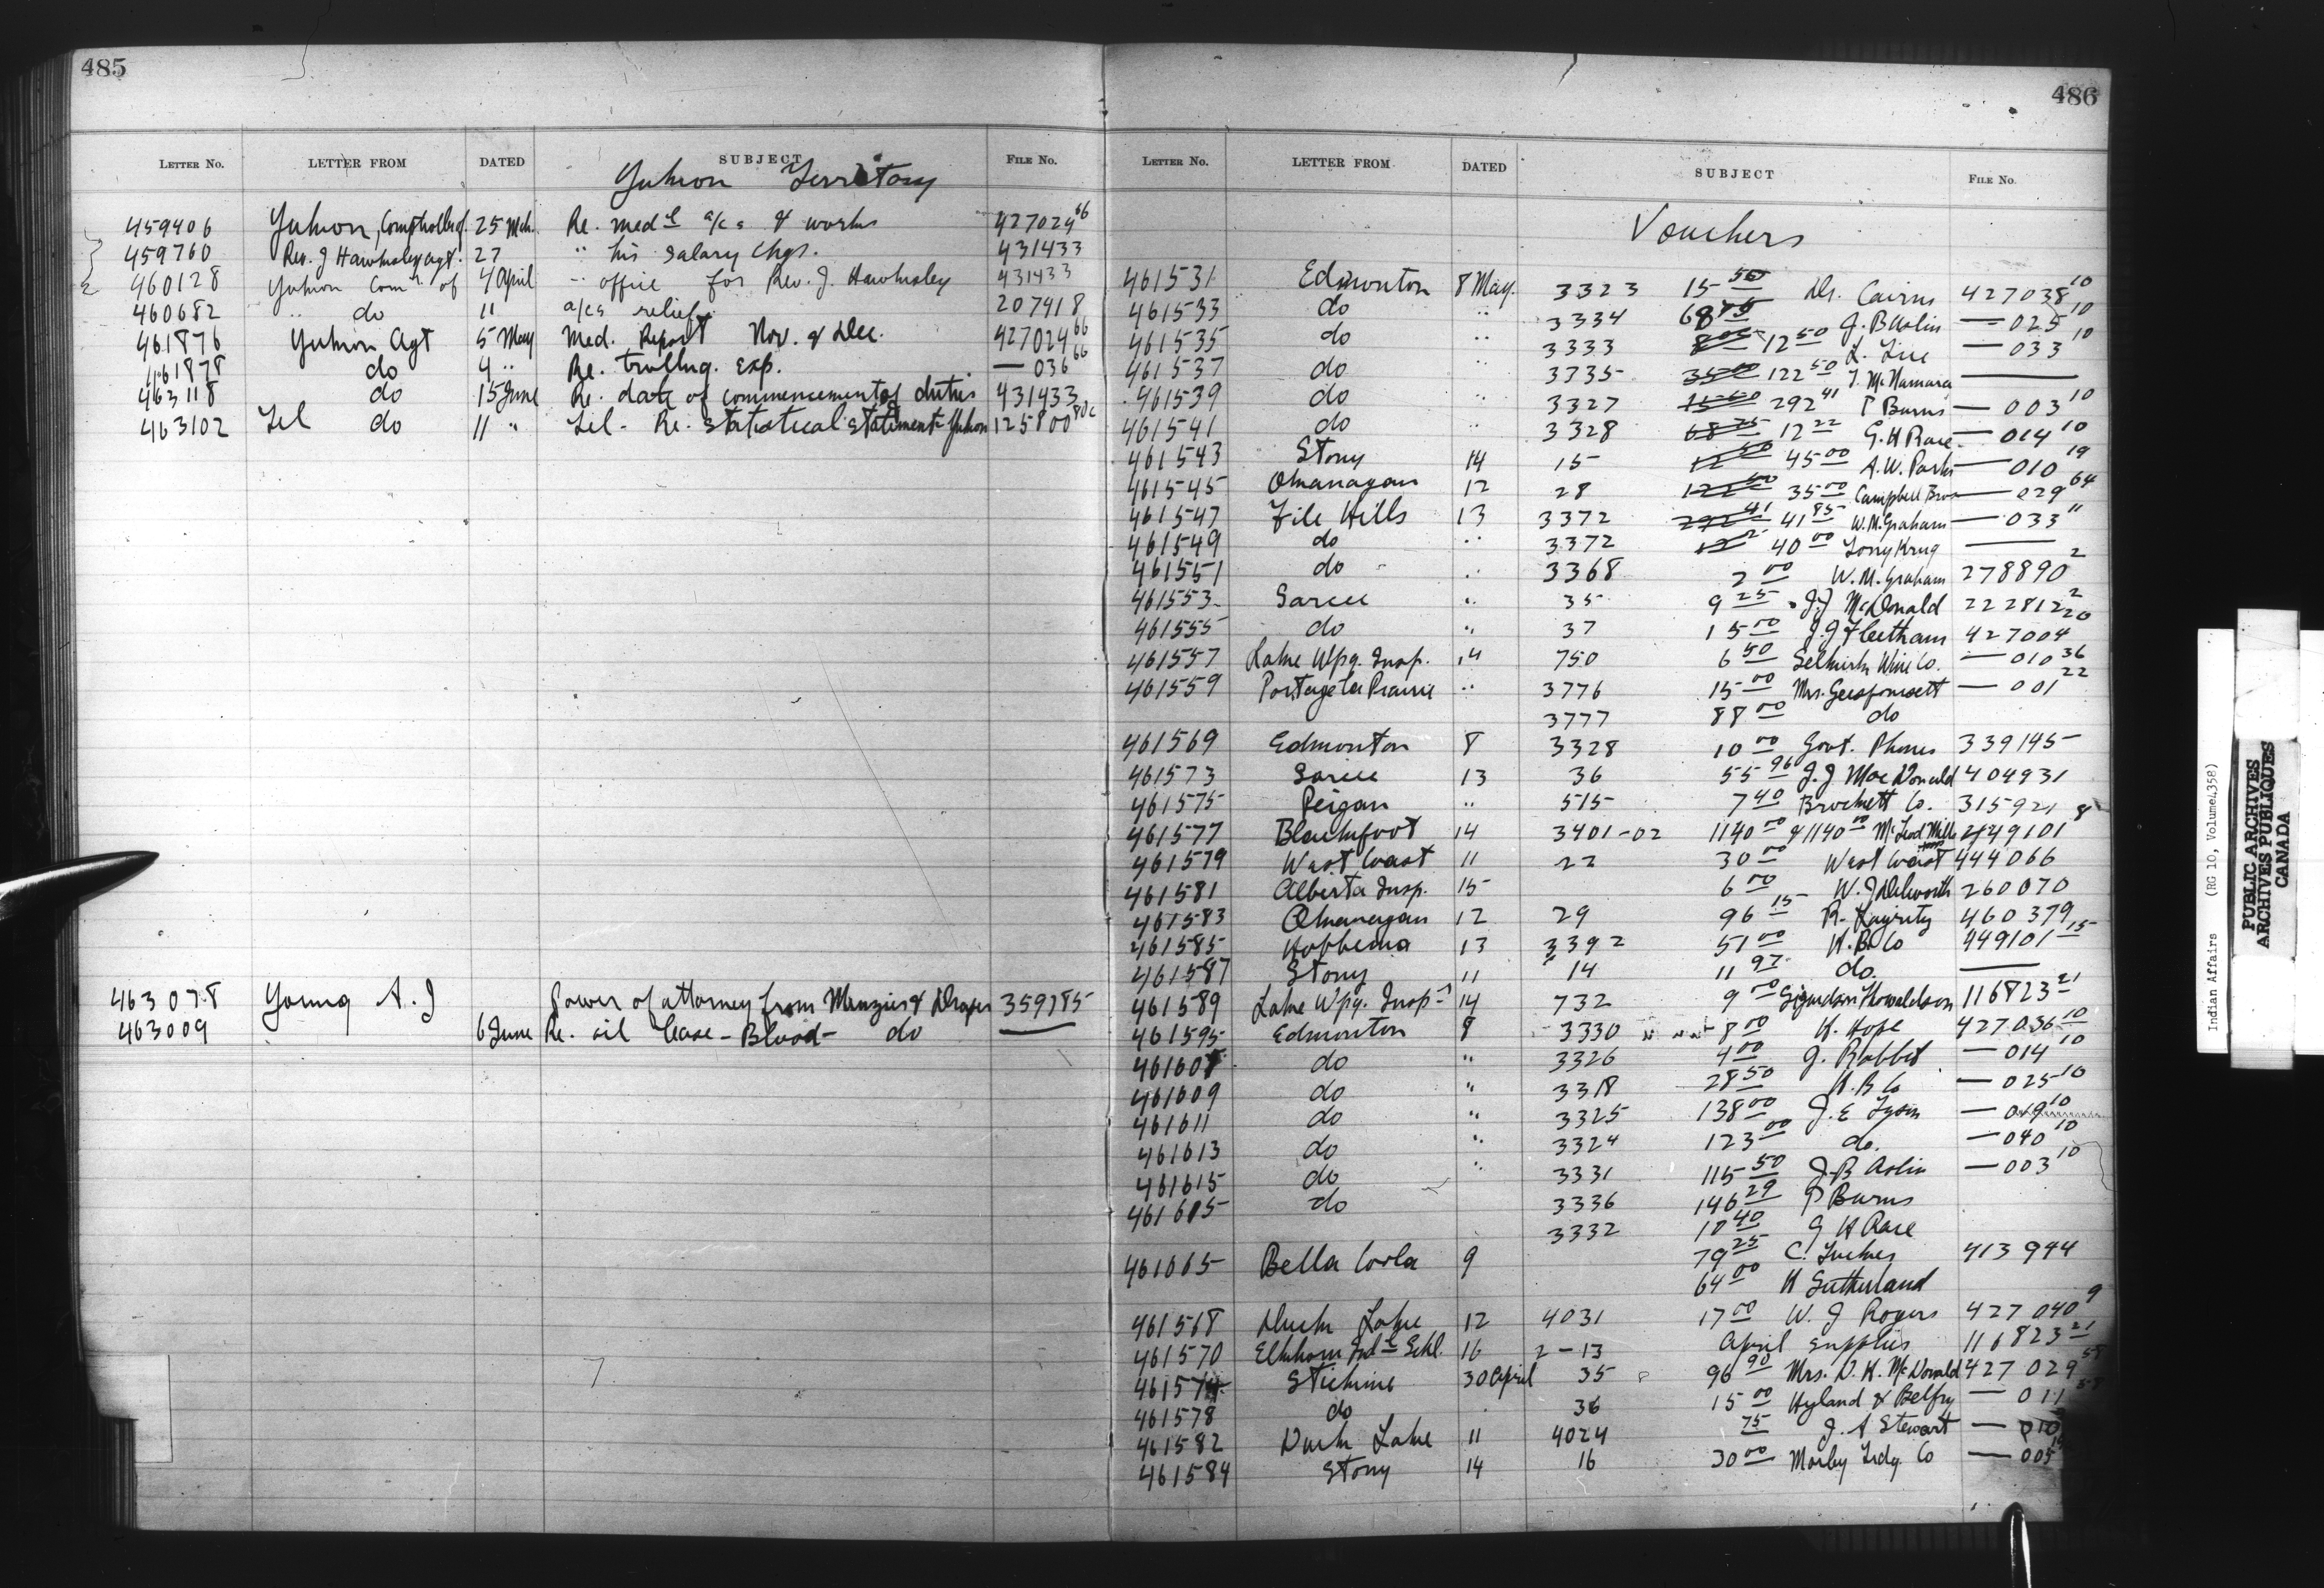 485
LETTER NO. LETTER FROM DATED SUBJECT FILE NO.
Yukon Territory
459406 Yukon, Comptroller of 25 Mch. Re. medl a/cs & works 427024 66
459760 Rev. J Hawksley agt. 27 " his salary chgs. 431433
460128 Yukon Comr of 4 April " office for Rev. J. Hawksley 431433
460682 " do 11 a/cs relief 207418
461876 Yukon Agt 5 May Med. Report Nov. & Dec. 427024 66
461878 do 4 " Re. trvllng. Exp. — 036 66
463118 do 15 June Re. date of commencement of duties 431433
463102 Tel do 11 " Tel. Re. Statistical Statement Yukon 125800
463078 Young A. J Power of attorney from Menzies & Draper 359785
463009 6 June Re. oil lease - Blood - do —
486
LETTER NO. LETTER FROM DATED SUBJECT FILE NO.
Vouchers
461531 Edmonton 8 May. 3323 15 50 Dr. Cairns 427038 10
461533 do " 3334 68 75 J. B Aslin — 025 10
461535 do " 3333 12 50 — 033 10
461537 do " 3335 35 00 122 50 T. McNamara —
461539 do " 3327 292 41 P Burns — 003 10
461541 do " 3328 68 75 12 22 G. H Race — 014 10
461543 Stony 14 15 12 50 45 00 A. W. Parks — 010 19
461545 Okanagan 12 28 122 50 35 00 Campbell Bros — 029 64
461547 File Hills 13 3372 292 41 41 85 W. M. Graham — 033 11
461549 do " 3372 40 00 Tony Krug —
461551 do " 3368 2 00 W. M. Graham 278890 2
461553 Sarcee " 35 9 25 J. J McDonald 222812 2
461555 do " 37 15 00 J. J Fleetham 427004 20
461557 Lake Wpg. Insp. 14 750 6 50 Selkirk Wine Co. — 010 36
461559 Portage la Prairie " 3776 15 00 — 001 22
3777 88 00 do
461569 Edmonton 8 3328 10 00 Govt. Phones 339145
461573 Sarcee 13 36 55 96 J. J MacDonald 404931
461575 Peigan " 515 7 40 Brockett Co. 315921
461577 Blackfoot 14 3401-02 1140 00 & 1140 00 McLeod Mills 449101 8
461579 West Coast 11 22 30 00 West Coast 444066
461581 Alberta Insp. 15 6 00 W. J Dilworth 260070
461583 Okanagan 12 29 96 15 R. 460379
461585 Hobbema 13 3392 51 00 H. B. Co 449101 15
461587 Stony 11 14 11 97 do. —
461589 Lake Wpg. Insp. 14 732 9 00 Sigurdson Thorvaldson 116823 21
461595 Edmonton 8 3330 8 00 K. Hope 427036 10
461607 do " 3326 4 00 J. Rabbit — 014 10
461609 do " 3318 28 50 H. B Co — 025 10
461611 do " 3325 138 00 J. E Tyson — 019 10
461613 do " 3324 123 00 do. — 040 10
461615 do " 3331 115 50 J. B Aslin — 003 10
461615 do 3336 146 29 P Burns
3332 10 40 G H Race
461665 Bella Coola 9 79 25 C. 413944
64 00 H Sutherland
461568 Duck Lake 12 4031 17 00 W. J Rogers 427040 9
461570 Elkhorn Indl Schl. 16 2-13 April supplies 116823 21
461574 Stickine 30 April 35 96 90 Mrs. D. K. McDonald 427029 58
461578 do 36 15 00 Hyland & Belfry — 011 58
461582 Duck Lake 11 4024 75 J. A Stewart — 010
461584 Stony 14 16 30 00 Morley Trdg Co — 005 19
Indian Affairs (RG 10, Volume 4358)
PUBLIC ARCHIVES
ARCHIVES PUBLIQUES
CANADA